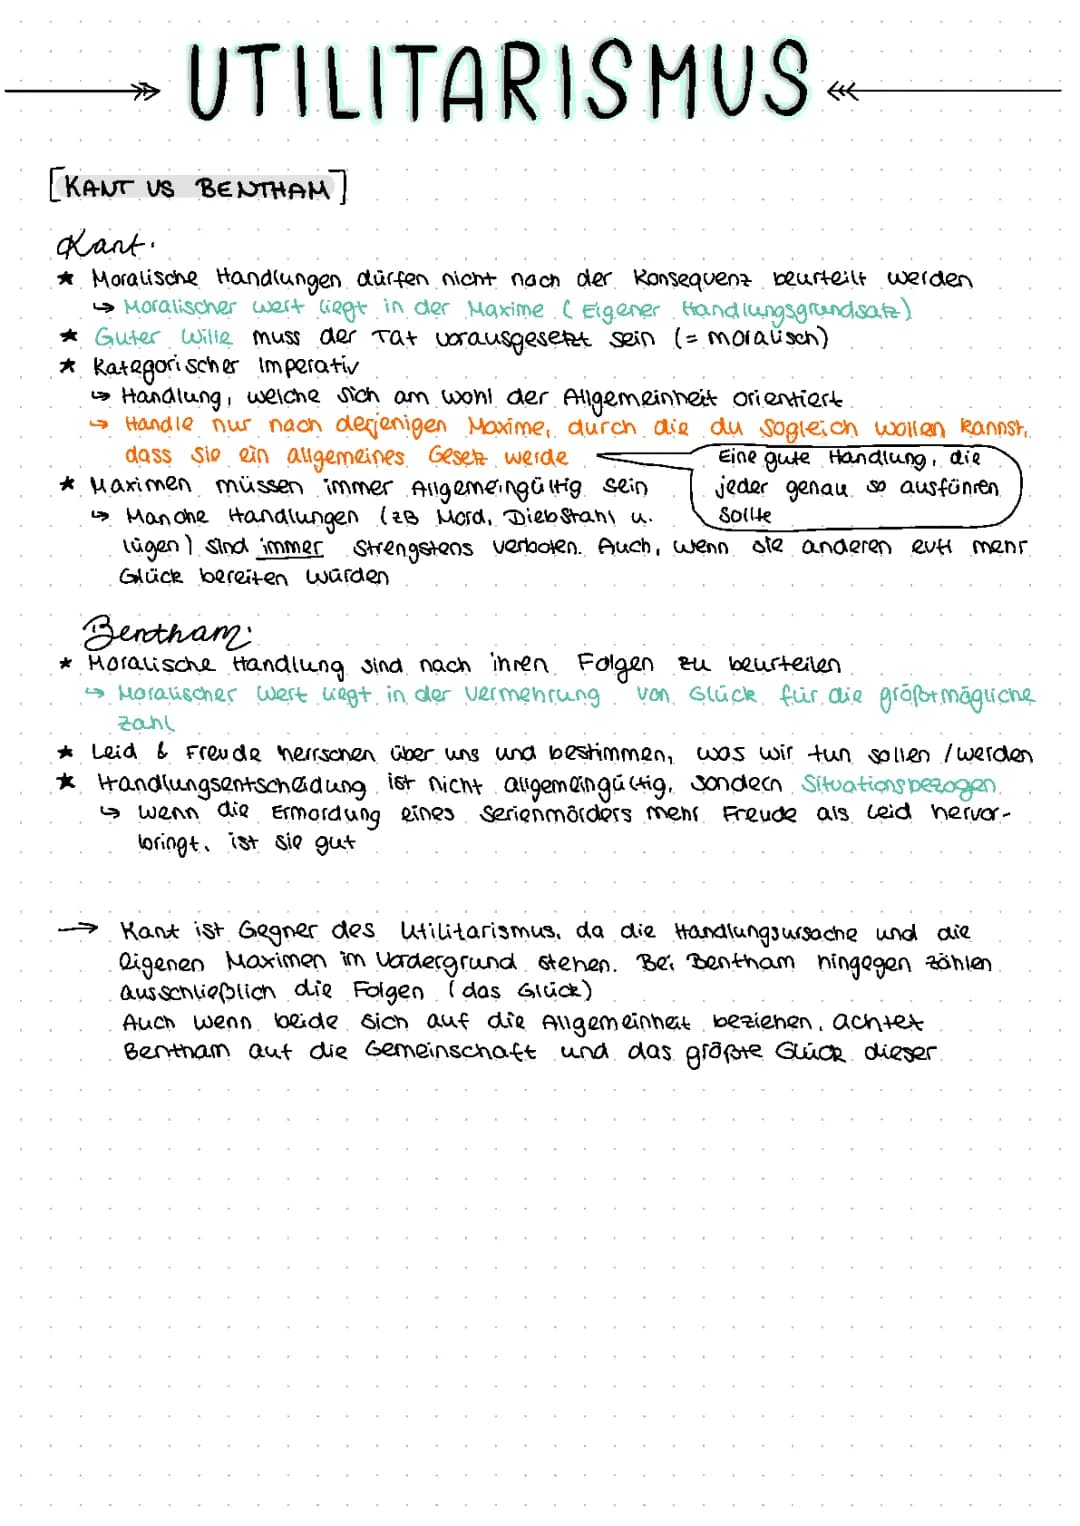 UTILITARISMUS
[KANT VS BENTHAM]
Kant:
* Moralische Handlungen dürfen nicht nach der Konsequenz beurteilt werden
↳ Moralischer wert liegt in der Maxime (Eigener Handlungsgrundsatz)
* Guter Wille muss der Tat vorausgesetzt sein (= moralisch)
* Kategorischer Imperativ
↳ Handlung, welche sich am wohl der Allgemeinheit orientiert
↳ Handle nur nach derjenigen Maxime, durch die du sogleich wollen kannst,
dass sie ein allgemeines Gesetz werde
Eine gute Handlung, die
jeder genau so ausführen
sollte
* Maximen müssen immer Allgemeingültig sein
↳ Manche Handlungen (zB Mord, Diebstahl u.
lügen) sind immer strengstens verboten. Auch, wenn sie anderen evtl mehr
Glück bereiten würden
Bentham:
* Moralische Handlung sind nach ihren Folgen zu beurteilen
↳ Moralischer Wert liegt in der Vermehrung von Glück für die größtmögliche
Zahl
* Leid & Freude herrschen über uns und bestimmen, was wir tun sollen / werden
* Handlungsentscheidung ist nicht allgemeingültig, sondern Situationsbezogen
↳ wenn die Ermordung eines Serienmörders mehr Freude als Leid hervor-
bringt, ist sie gut
→ Kant ist Gegner des Utilitarismus, da die Handlungsursache und die
eigenen Maximen im Vordergrund stehen. Bei Bentham hingegen zählen
ausschließlich die Folgen (das Glück)
Auch wenn beide sich auf die Allgemeinheit beziehen, achtet
Bentham auf die Gemeinschaft und das größte Glück dieser